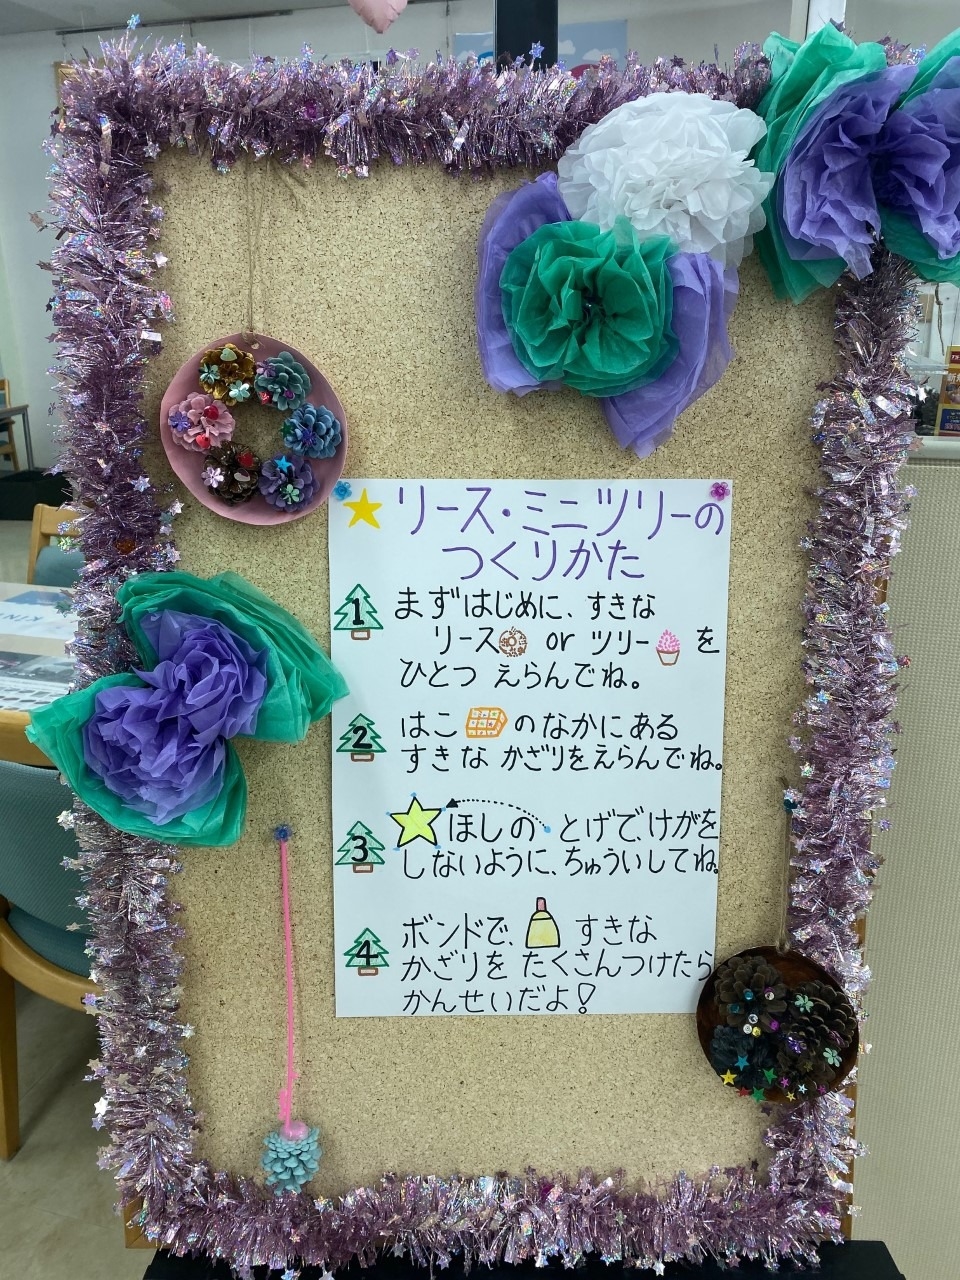 リース・ミニツリーの
つくりかた
1 まずはじめに、すきな
リース or ツリー を
ひとつ えらんでね。
2 はこ のなかにある
すきな かざりをえらんでね。
3 ほしの とげで、けがを
しないように、ちゅういしてね。
4 ボンドで、 すきな
かざりを たくさんつけたら
かんせいだよ!